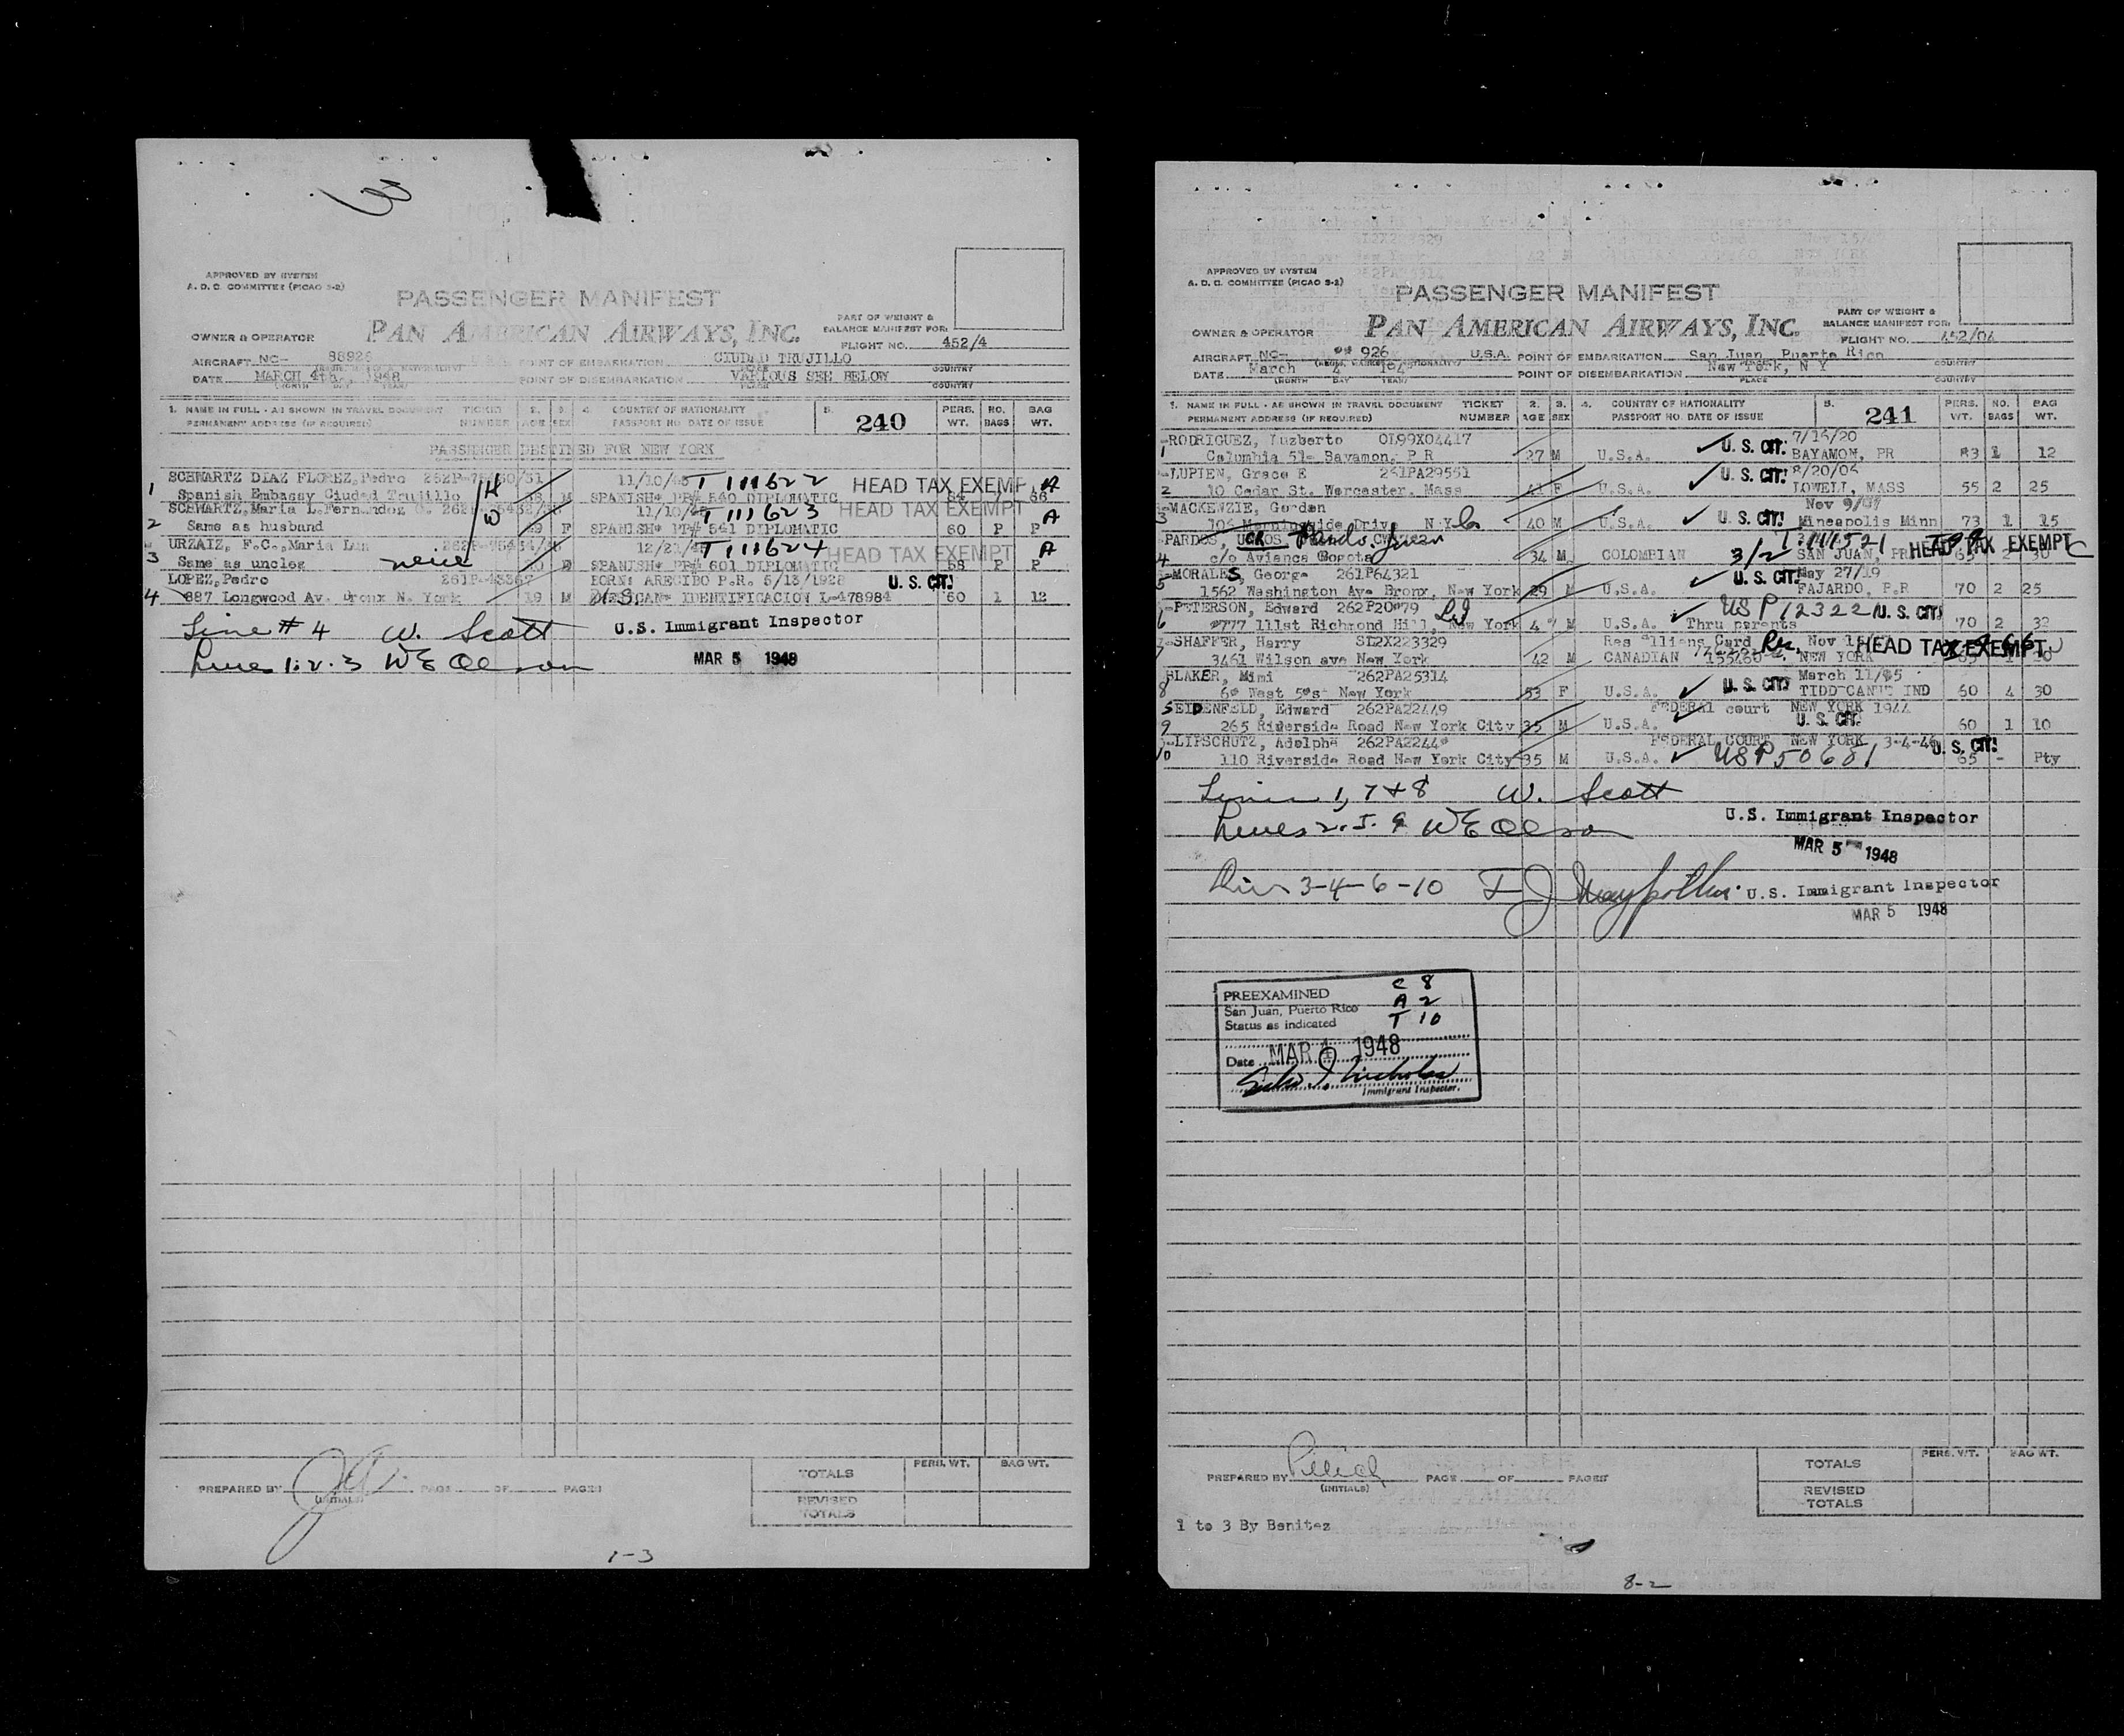 APPROVED BY SYSTEM
A. D. C. COMMITTEE (PICAO S-2)
PASSENGER MANIFEST
OWNER & OPERATOR PAN AMERICAN AIRWAYS, INC.
PART OF WEIGHT &
BALANCE MANIFEST FOR:
FLIGHT NO. 452/4
AIRCRAFT NC- 88926 POINT OF EMBARKATION CIUDAD TRUJILLO
COUNTRY
DATE MARCH 4th, 1948 POINT OF DISEMBARKATION VARIOUS SEE BELOW
COUNTRY
1. NAME IN FULL - AS SHOWN IN TRAVEL DOCUMENT TICKET 2. 3. 4. COUNTRY OF NATIONALITY 5. 240 PERS. NO. BAG
PERMANENT ADDRESS (IF REQUIRED) NUMBER AGE SEX PASSPORT NO DATE OF ISSUE WT. BAGS WT.
PASSENGER DESTINED FOR NEW YORK
SCHWARTZ DIAZ FLOREZ, Pedro T 111622 HEAD TAX EXEMPT A
1 Spanish Embassy Ciudad Trujillo M SPANISH* PP# 540 DIPLOMATIC
H
SCHWARTZ, Maria L. Fernandez T 111623 HEAD TAX EXEMPT A
2 Same as husband F SPANISH* PP# 541 DIPLOMATIC 60 P P
W
URZAIZ, F.C., Maria T 111624 HEAD TAX EXEMPT A
3 Same as uncles SPANISH* PP# 601 DIPLOMATIC 58 P P
LOPEZ, Pedro BORN: ARECIBO P.R. 5/13/1928 U. S. CIT.
4 887 Longwood Av. Bronx N. York 19 M IDENTIFICACION I-478984 60 1 12
Line # 4 W. Scott U.S. Immigrant Inspector
Lines 1. 2. 3 W E Olson MAR 5 1948
PREPARED BY
(INITIALS)
PAGE OF PAGES
PERS. WT. BAG WT.
TOTALS
REVISED
TOTALS
1-3
APPROVED BY SYSTEM
A. D. C. COMMITTEE (PICAO S-2)
PASSENGER MANIFEST
OWNER & OPERATOR PAN AMERICAN AIRWAYS, INC.
PART OF WEIGHT &
BALANCE MANIFEST FOR:
FLIGHT NO. 452/04
AIRCRAFT NC- 926 U.S.A. POINT OF EMBARKATION San Juan, Puerto Rico
COUNTRY
DATE March 4 POINT OF DISEMBARKATION New York, N Y
(MONTH DAY YEAR) PLACE COUNTRY
1. NAME IN FULL - AS SHOWN IN TRAVEL DOCUMENT TICKET 2. 3. 4. COUNTRY OF NATIONALITY 5. 241 PERS. NO. BAG
PERMANENT ADDRESS (IF REQUIRED) NUMBER AGE SEX PASSPORT NO. DATE OF ISSUE WT. BAGS WT.
RODRIGUEZ, Luzberto OL99X04417 U. S. CIT.
1 Columbia 51- Bayamon, P R 27 M U.S.A. BAYAMON, PR 83 1 12
LUPIEN, Grace E 261PA29551 U. S. CIT. 8/20/06
2 10 Cedar St. Worcester. Mass 41 F U.S.A. LOWELL, MASS 55 2 25
MACKENZIE, Gordon Nov 9/07
3 Morningside Drive N Y 40 M U.S.A. U. S. CIT. Mineapolis Minn 73 1 15
PARDOS, Pardo, Juan
4 c/o Avianca Bogota 34 M COLOMBIAN 3/2 SAN JUAN, PR HEAD TAX EXEMPT
MORALES, George 261P64321 U. S. CIT. May 27/19
5 1562 Washington Ave Bronx, New York 29 M U.S.A. FAJARDO, P.R 70 2 25
PETERSON, Edward US P 12322 U. S. CIT.
6 111st Richmond Hill, New York M U.S.A. Thru parents 70 2 32
SHAFFER, Harry SL2X223329 Res Aliens Card HEAD TAX EXEMPT
7 3461 Wilson ave New York 42 M CANADIAN NEW YORK
BLAKER, Mimi 262PA25314 U. S. CIT. March 11/
8 New York 53 F U.S.A. IND 60 4 30
SEIDENFELD, Edward 262PA22449 FEDERAL court NEW YORK 1944
9 265 Riderside Road New York City 35 M U.S.A. U. S. CIT. 60 1 10
LIPSCHUTZ, Adolph FEDERAL COURT NEW YORK 3-4-46 U. S. CIT.
10 110 Riverside Road New York City 35 M U.S.A. US P 50681 65 - Pty
Lines 1, 7 & 8 W. Scott
U.S. Immigrant Inspector
Lines 2. 5. 9 W E Olson
MAR 5 1948
3-4-6-10 U.S. Immigrant Inspector
MAR 5 1948
PREEXAMINED C 8
San Juan, Puerto Rico A 2
Status as indicated T 10
Date MAR 4 1948
Immigrant Inspector.
PREPARED BY
(INITIALS)
PAGE OF PAGES
PERS. WT. BAG WT.
TOTALS
REVISED
TOTALS
1 to 3 By Benitez
8-2